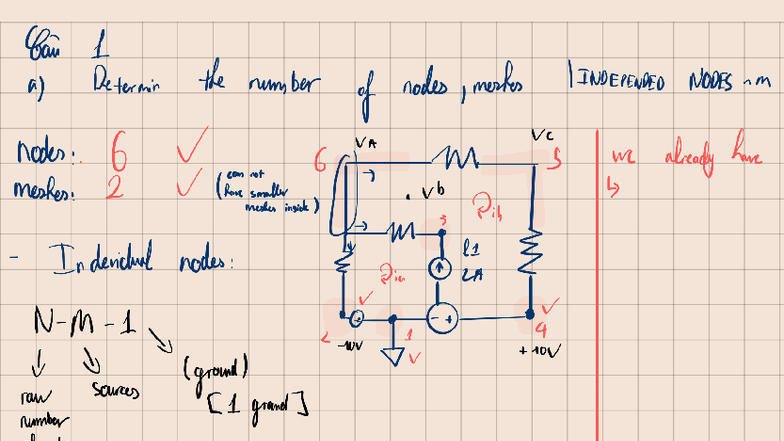 Câu 1
a) Determin the number of nodes, meshes | INDEPENDED NODES
nodes: 6 ✓
meshes: 2 ✓ (can not
have smaller
meshes inside)
- Indenidual nodes:
N-M-1
raw
number
sources
(ground)
[1 grand]
VA
Vc
6
5
Vb
3
2A
2
-10V
1
4
+10V
we already have